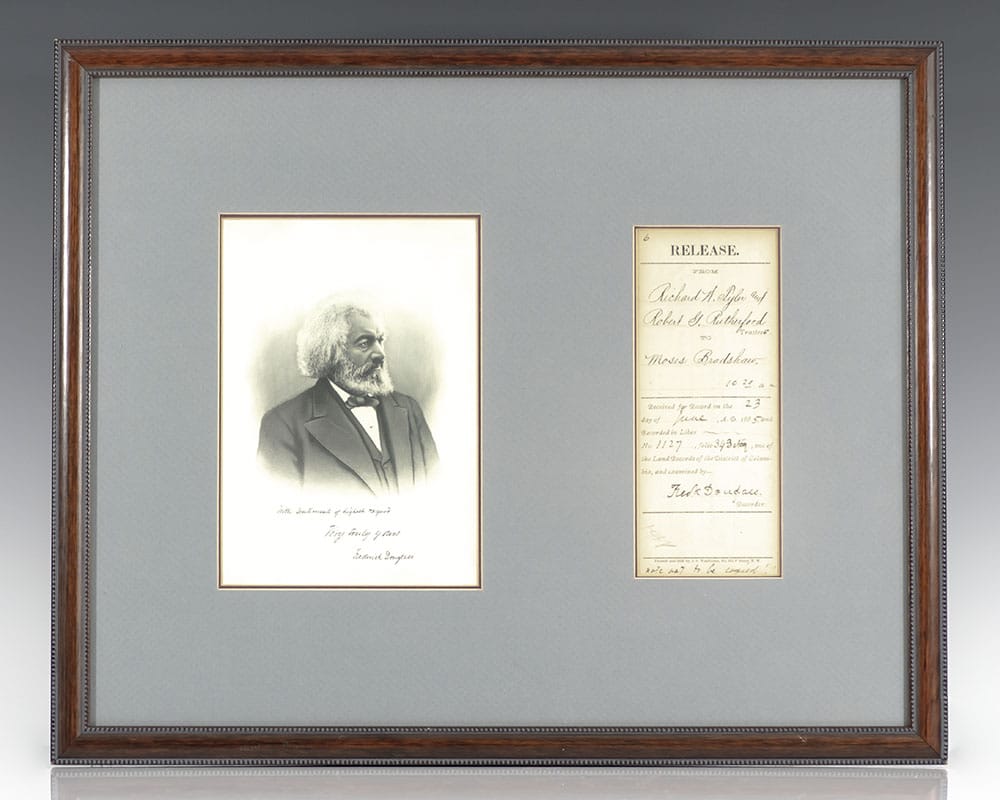 With Sentiment of highest regard
Very truly yours
Frederick Douglass
6
RELEASE.
FROM
Richard A.
Robert G. Rutherford
Trustees
TO
Moses Bradshaw.
10 20 a
Received for Record on the 23
day of June , A.D. 1885 and
Recorded in Liber
No. 1127 , folio 393 , one of
the Land Records of the District of Colum-
bia, and examined by
Fredk Douglass.
Recorder.
note not to be copied